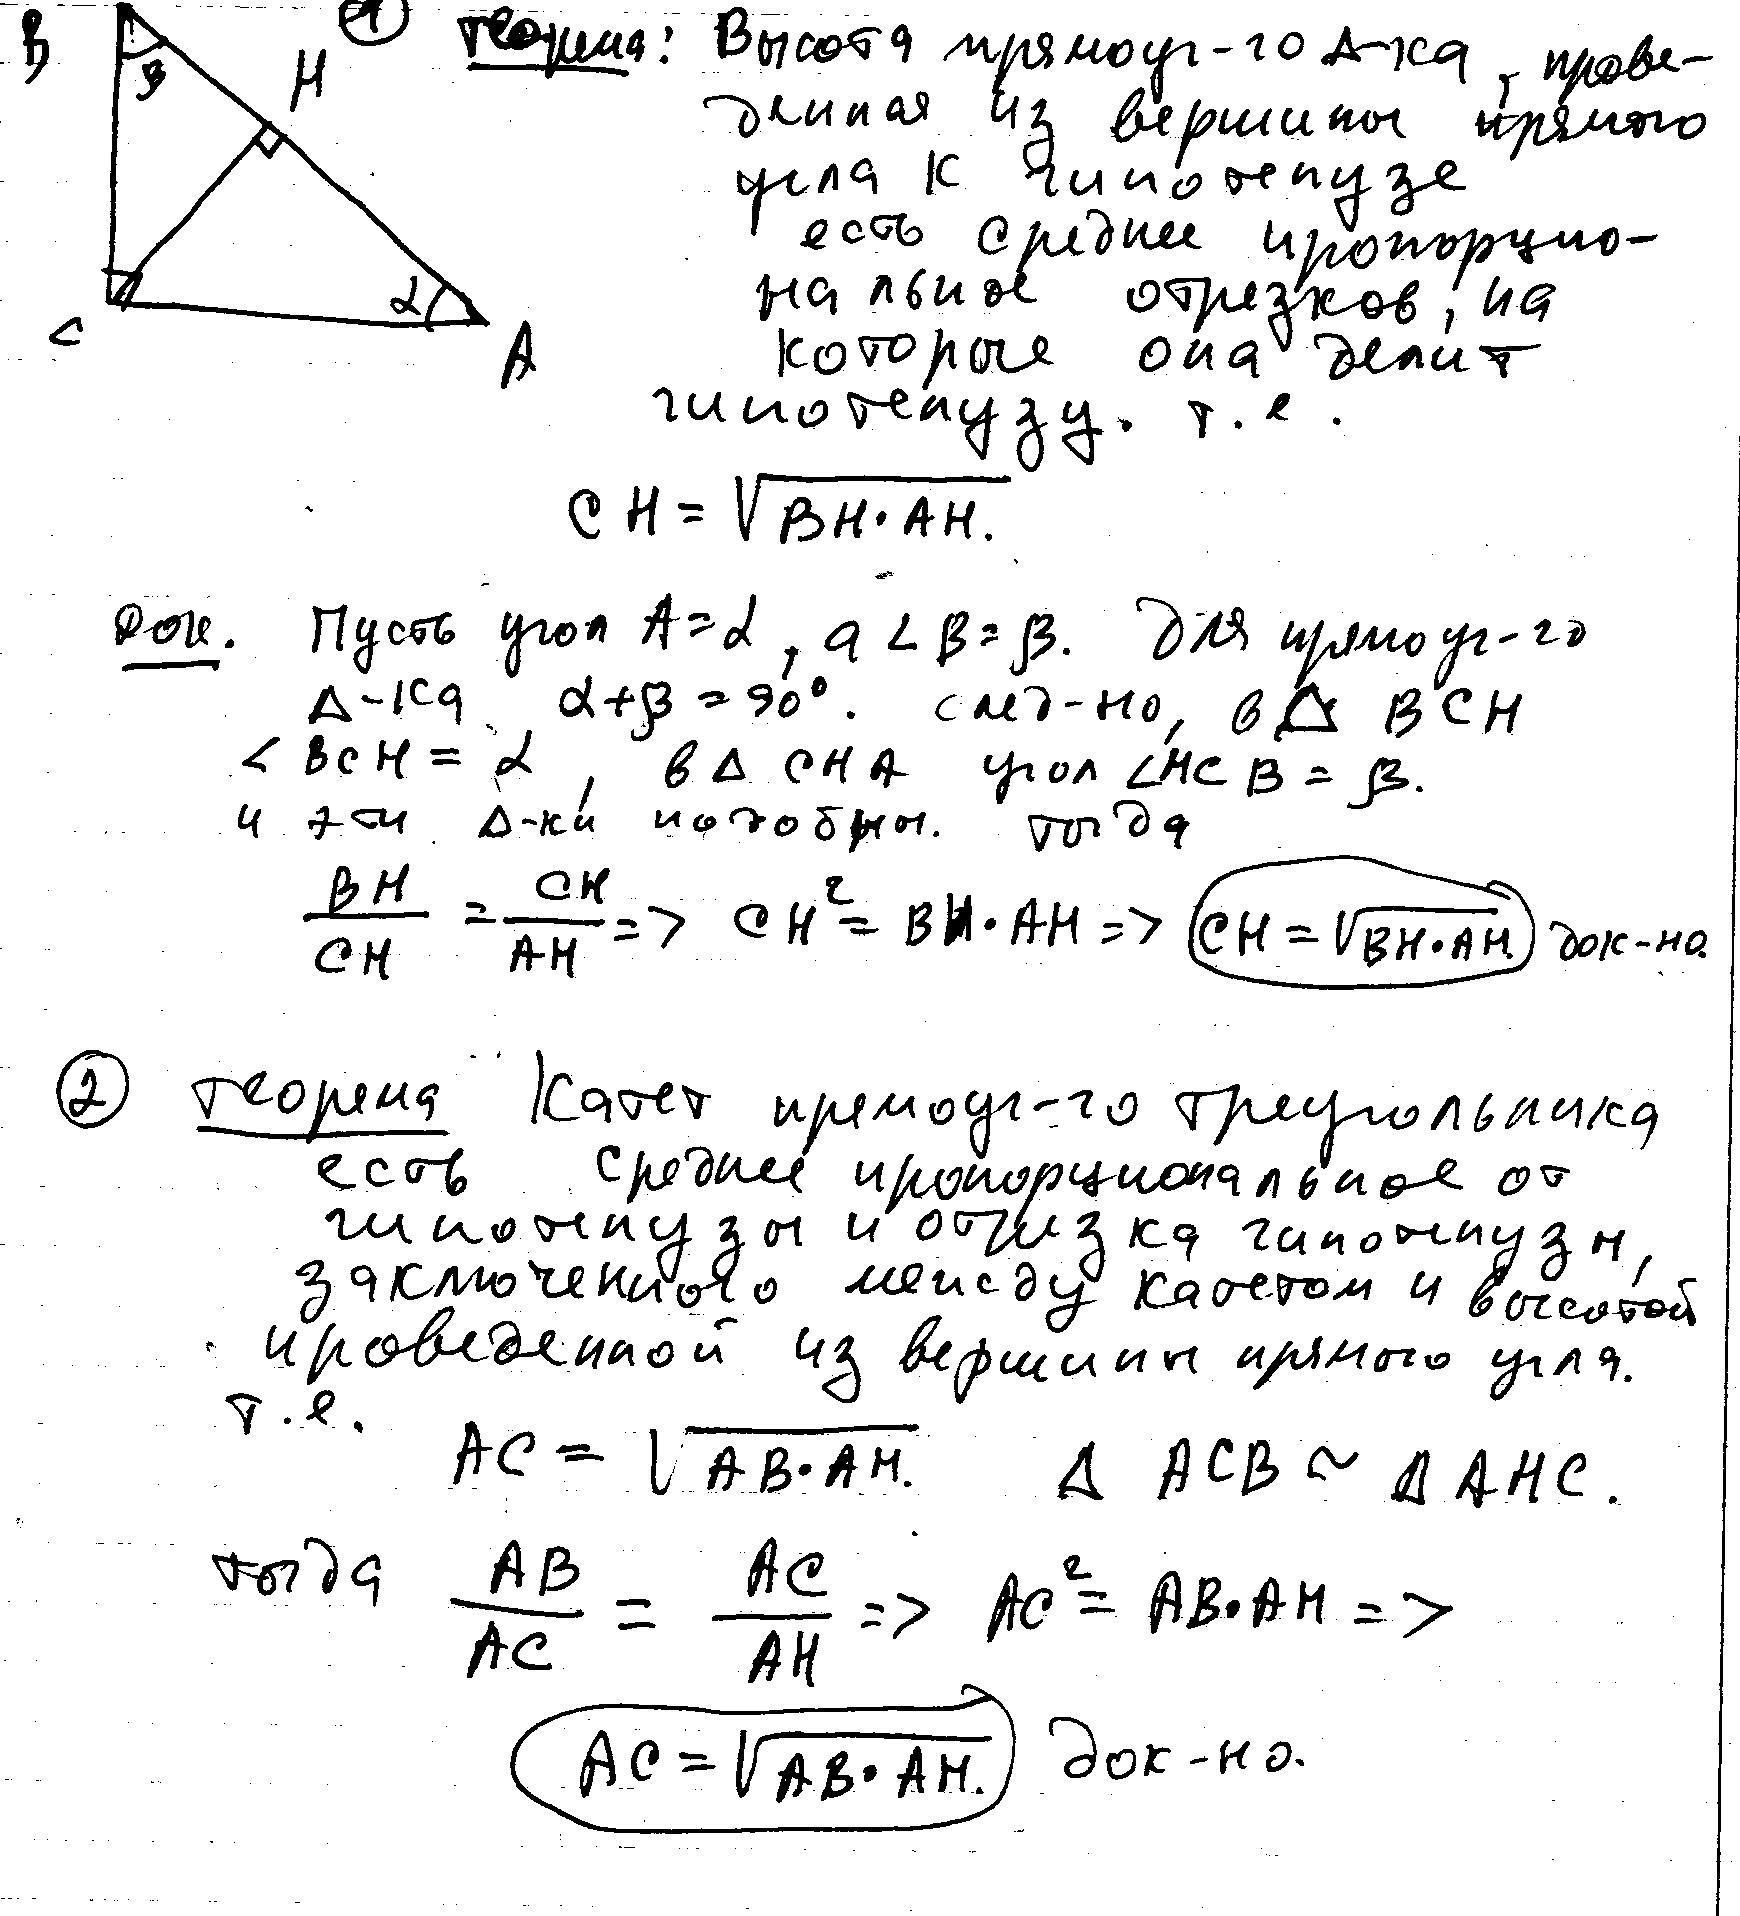 B
β
H
C
α
A
① Теорема: Высота прямоуг-го Δ-ка, прове-
денная из вершины прямого
угла к гипотенузе
есть среднее пропорцио-
нальное отрезков, на
которые она делит
гипотенузу. т.е.
CH = √BH·AH.
Док. Пусть угол A = α, а ∠B = β. Для прямоуг-го
Δ-ка α+β = 90°. след-но, в Δ BCH
∠BCH = α, в Δ CHA угол ∠HCB = β.
и эти Δ-ки подобны. тогда
BH/CH = CH/AH => CH² = BH·AH => CH = √BH·AH. док-но.
② Теорема Катет прямоуг-го треугольника
есть среднее пропорциональное от
гипотенузы и отрезка гипотенузы,
заключенного между катетом и высотой
проведенной из вершины прямого угла.
т.е.
AC = √AB·AH. Δ ACB ~ Δ AHC.
тогда AB/AC = AC/AH => AC² = AB·AH =>
AC = √AB·AH. док-но.